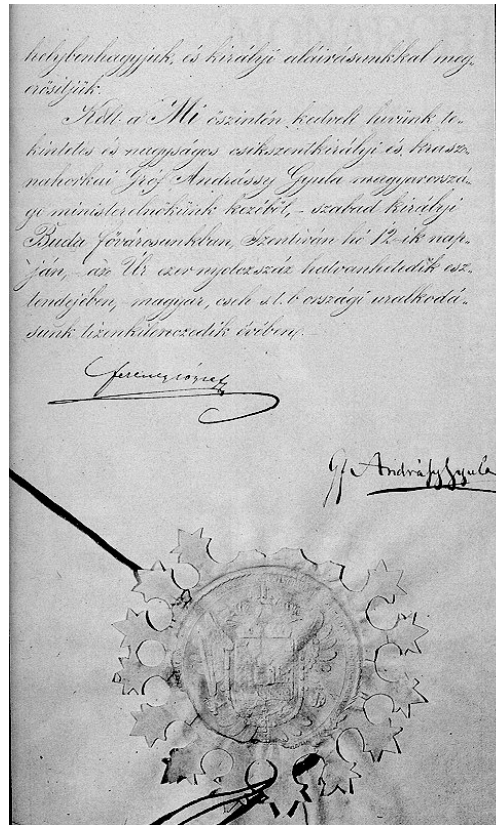 helybenhagyjuk, és királyi aláirásunkkal meg-
erősitjük.
Kelt a Mi őszintén kedvelt hivünk te-
kintetes és nagyságos csikszentkirályi és krasz-
nahorkai Gróf Andrássy Gyula magyarorszá-
gi ministerelnökünk kezéből, – szabad királyi
Buda fővárosunkban, Szentiván hó 12-ik nap-
ján, – az Úr ezer nyolczszáz hatvanhetedik esz-
tendejében, – magyar, cseh s.t.b országi uralkodá-
sunk tizenkilenczedik évében. –
Ferencz József
Gf Andrássy Gyula